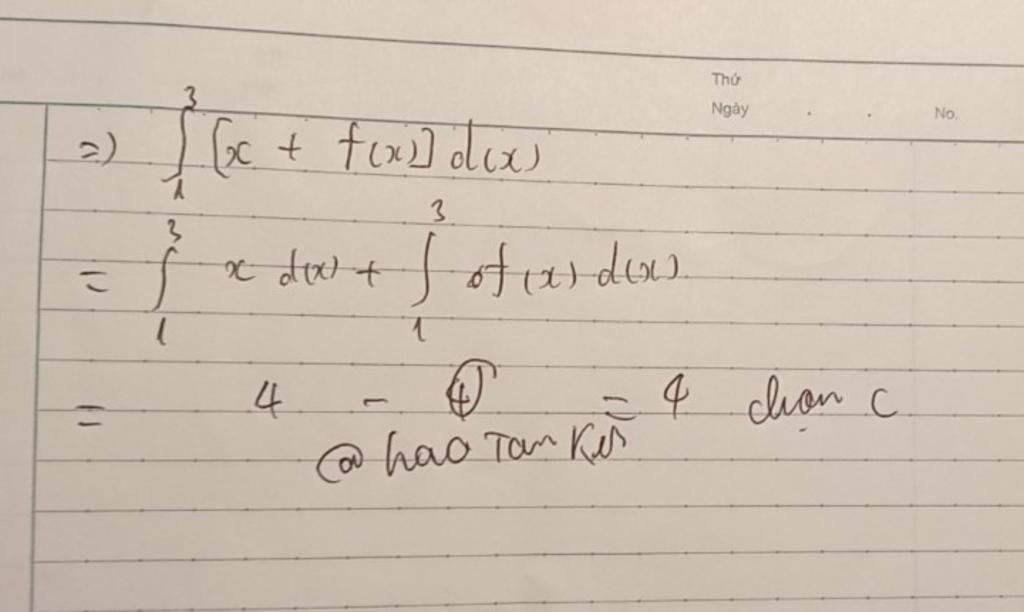 Thứ
Ngày . . No.
=) ∫₁³ [x + f(x)] d(x)
= ∫₁³ x d(x) + ∫₁³ f(x) d(x)
= 4 - = 4 chọn C
@ hao Tan